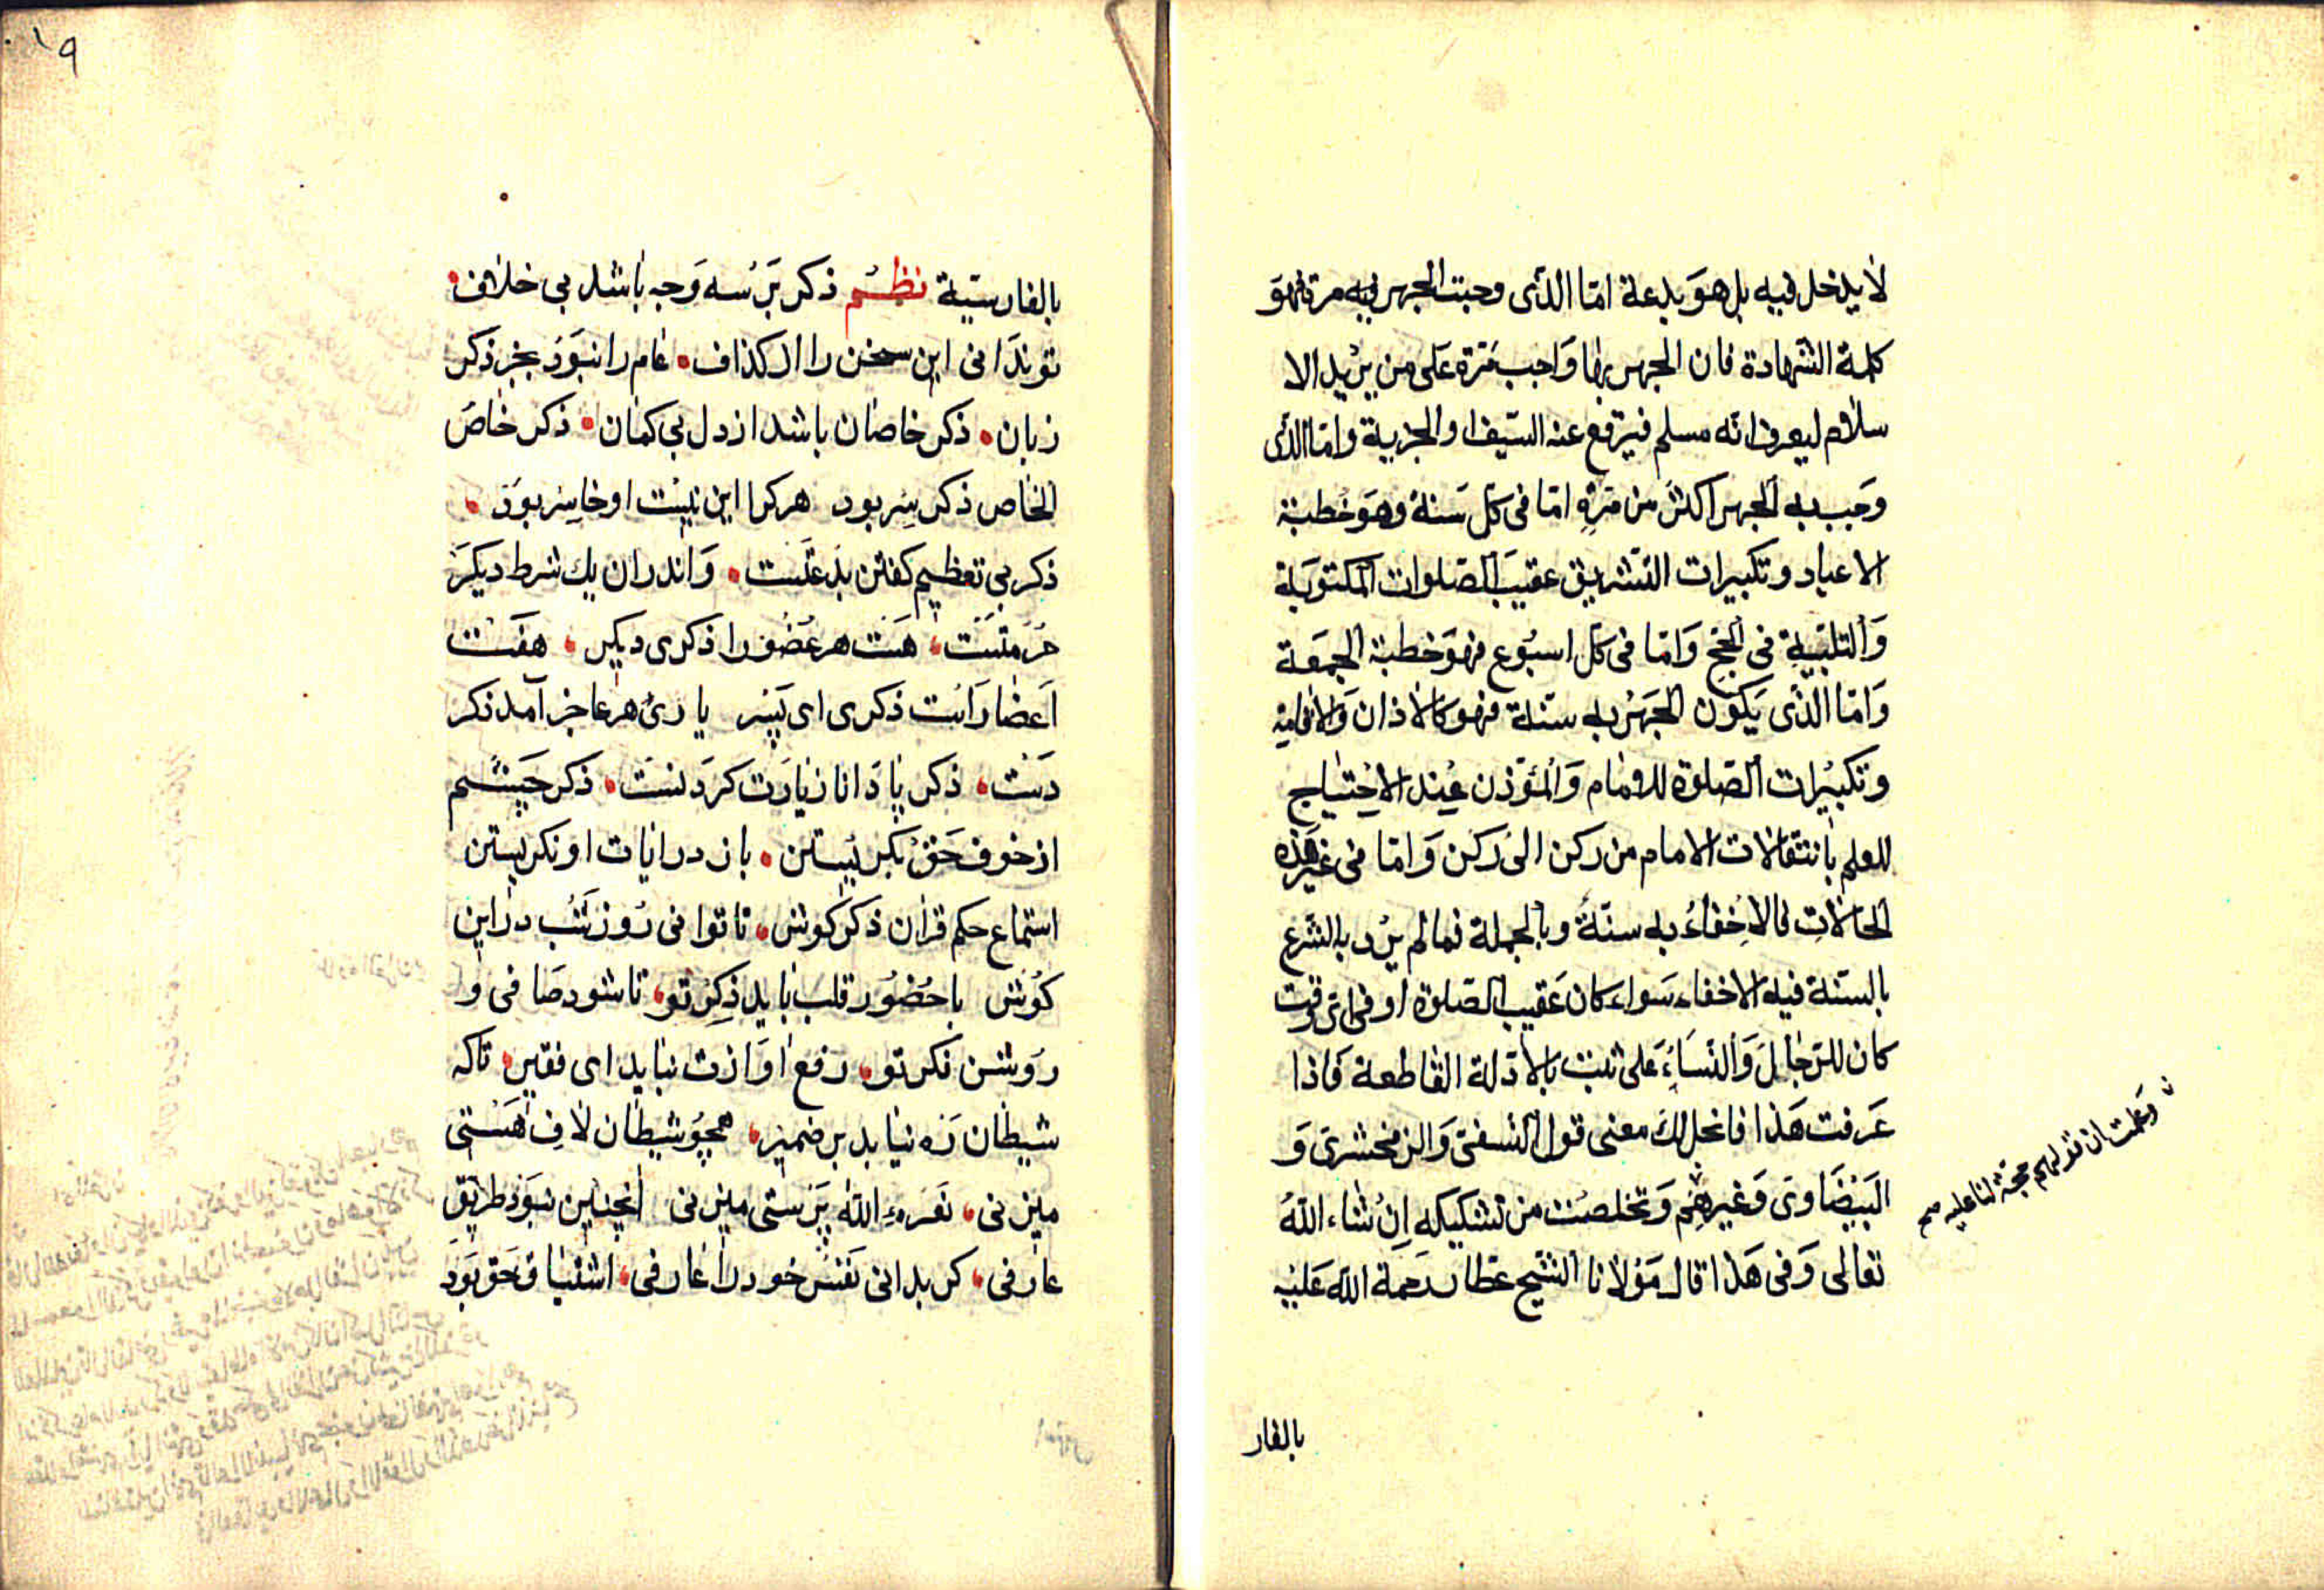 لا يدخل فيه بل هو بدعة امّا الذى وجبت الجهر فيه مرة فهوَ
كلمة الشهادة فان الجهر بها وَاجب مَرة عَلى من يريد الا
سلام ليعرف انّه مسلم فيرتفع عنه السّيف او الجزية وامّا الذى
وجب به الجهر اكثر من مَرّةٍ امّا فى كل سَنة وهوَ خُطبة
الاعياد وتكبيرات التشريق عقيبَ الصّلوات المكتوبَة
وَالتلبيةِ فى الحج وَامّا فى كل اسبُوع فهوَ خطبة الجمعَة
وَامّا الذى يَكون الجَهرُ به سنّة فهو كالاذان وَالاقامة
وتكبيْرات الصّلوة للامام وَالمُؤذن عِند الاحْتيَاج
للعلم بانتقالات الامام من ركن الى رُكن وَامّا فى غيْر هَذه
الحالاتِ فالاخِفاءُ به سنّةٌ وبالجملة فما لم يرُد بالشرع
بالسنة فيه الاخفاء سَواء كان عَقيب الصّلوة او فى اىّ وقت
كان للرّجال وَالنّسَاءِ عَلى ثبت بالادلة القاطعة فَاذا
عَرفت هَذا فانحل لكَ معنى قول النسفىّ وَالزمخشرىّ وَ
البَيْضَاوىّ وَغيرهِمْ وَتخلصْت من تشكيكه اِنْ شاء اللهُ
تعَالى وَفى هَذا قال مَوْلانا الشّيخ عَطار رَحمة الله عَليْه
وَعلمت ان قولهم حجة لنا عليه صح
بالفار
١٩
بالفارسيّة نظم ذكر بَر سُه وَجه باشد بى خلاف
تو ندَانى اين سخن را از كذاف عام را نبوَدْ بجز ذكر
زبان ذكر خاصان باشد از دل بى كمان ذكر خاصّ
الخاص ذكر سِر بود هر كرا اين نيسْت او خاسِر بوَدْ
ذكر بى تعظيم كفتن بذعتَست وَاندران يك شرط ديكرَ
حُرمتسَت هَست هر عُضْو را ذكرى ديكر هفَت
اَعضا رَاست ذكرى اى پَسَر يارئ هر عاجز آمد ذكر
دَست ذكر پا دَانا زيارَت كرَدنست ذكر چَشم
از خوف حَقْ بكريْستن باز در ايات او نكريستن
استماع حكم قرآن ذكر كوش تا توانى رُوز شَبْ در اين
كوُش با حُضُور قلب بايد ذِكر تو تا شود صَافى و
رَوشن فكر تو رفع اوَازت نبايد اى فقير تا كه
شيطان رَه نيابد بر ضمير همچُو شيطان لافِ هَستى
ميزنى نَعرهءِ الله پَرستى ميزنى اَنچنين نبوَدْ طريق
عارفى كر بدانى نَفسْ خود را عارفى اشتياق حَق بَودَ